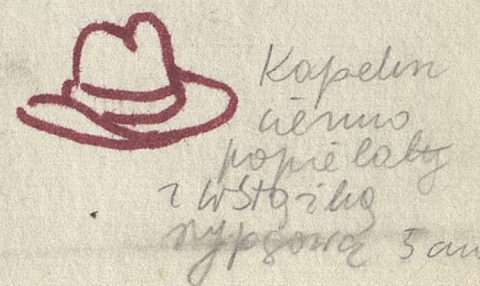 Kapelusz
ciemno
popielaty
z wstążką
rypsową 5 cm